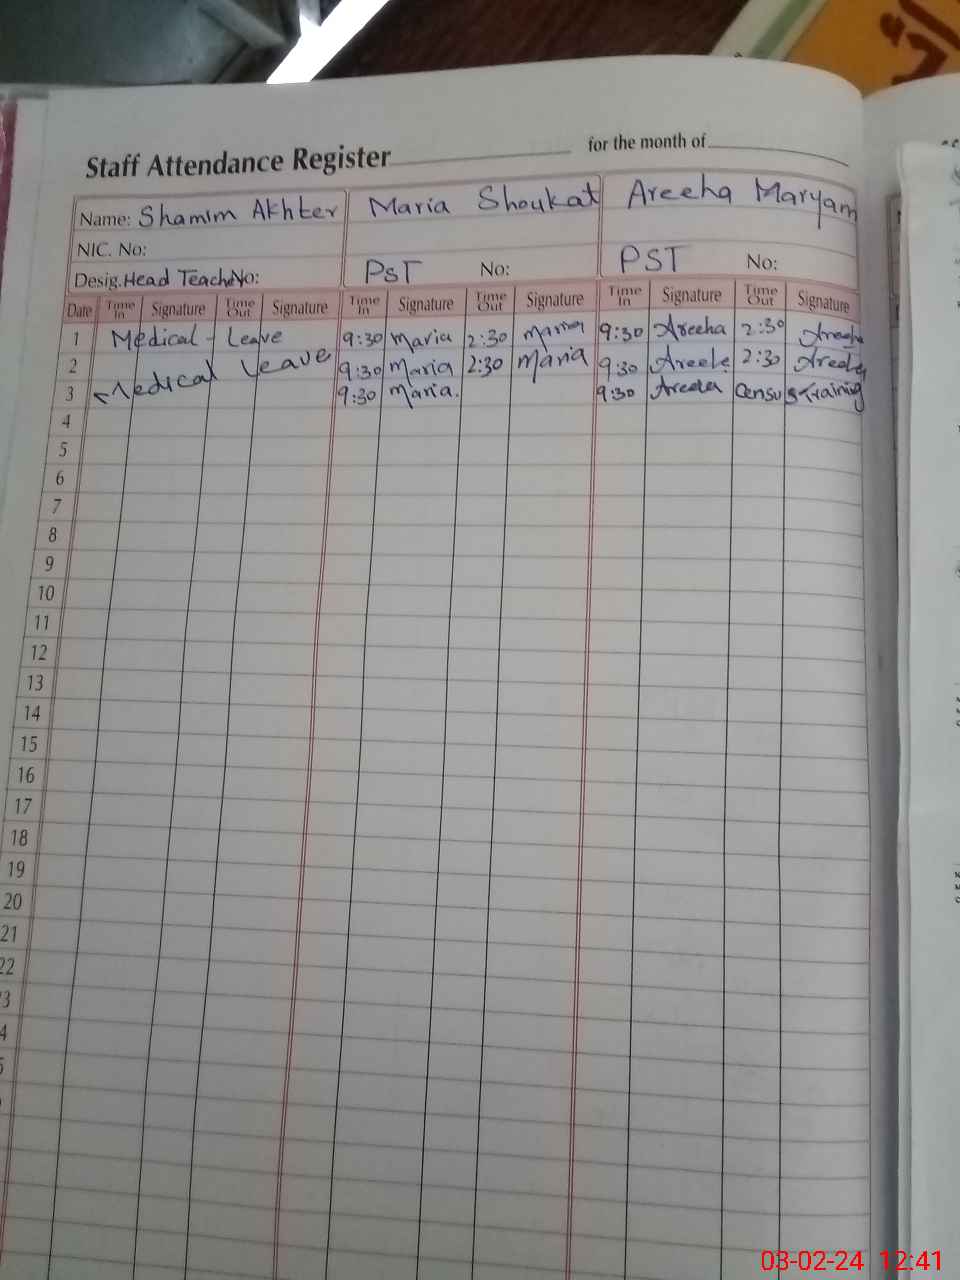 Staff Attendance Register for the month of
Name: Shamim Akhter Maria Shoukat Areeha Maryam
NIC. No:
Desig. Head Teacher No: PST No: PST No:
Date Time In Signature Time Out Signature Time In Signature Time Out Signature Time In Signature Time Out Signature
1 Medical - Leave 9:30 Maria 2:30 Maria 9:30 Areeha 2:30 Areeha
2 Medical Leave 9:30 Maria 2:30 Maria 9:30 Areeha 2:30 Areeha
3 9:30 Maria. 9:30 Areeha Census Training
4
5
6
7
8
9
10
11
12
13
14
15
16
17
18
19
20
21
22
3
4
03-02-24 12:41